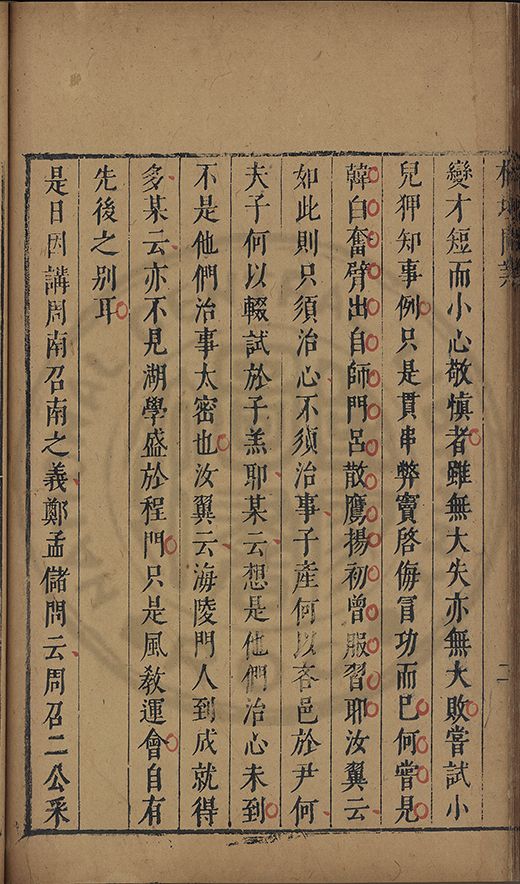 變才短而小心敬慎者雖無大失亦無大敗嘗試小
兒狎知事例只是貫串弊竇啓侮冒功而已何嘗見
韓白奮臂出自師門呂散鷹揚初曾服習耶汝翼云
如此則只須治心不須治事子產何以吝邑於尹何
夫子何以輟試於子羔耶某云想是他們治心未到
不是他們治事太密也汝翼云海陵門人到成就得
多某云亦不見湖學盛於程門只是風敎運會自有
先後之別耳
是日因講周南召南之義鄭孟儲問云周召二公采
二